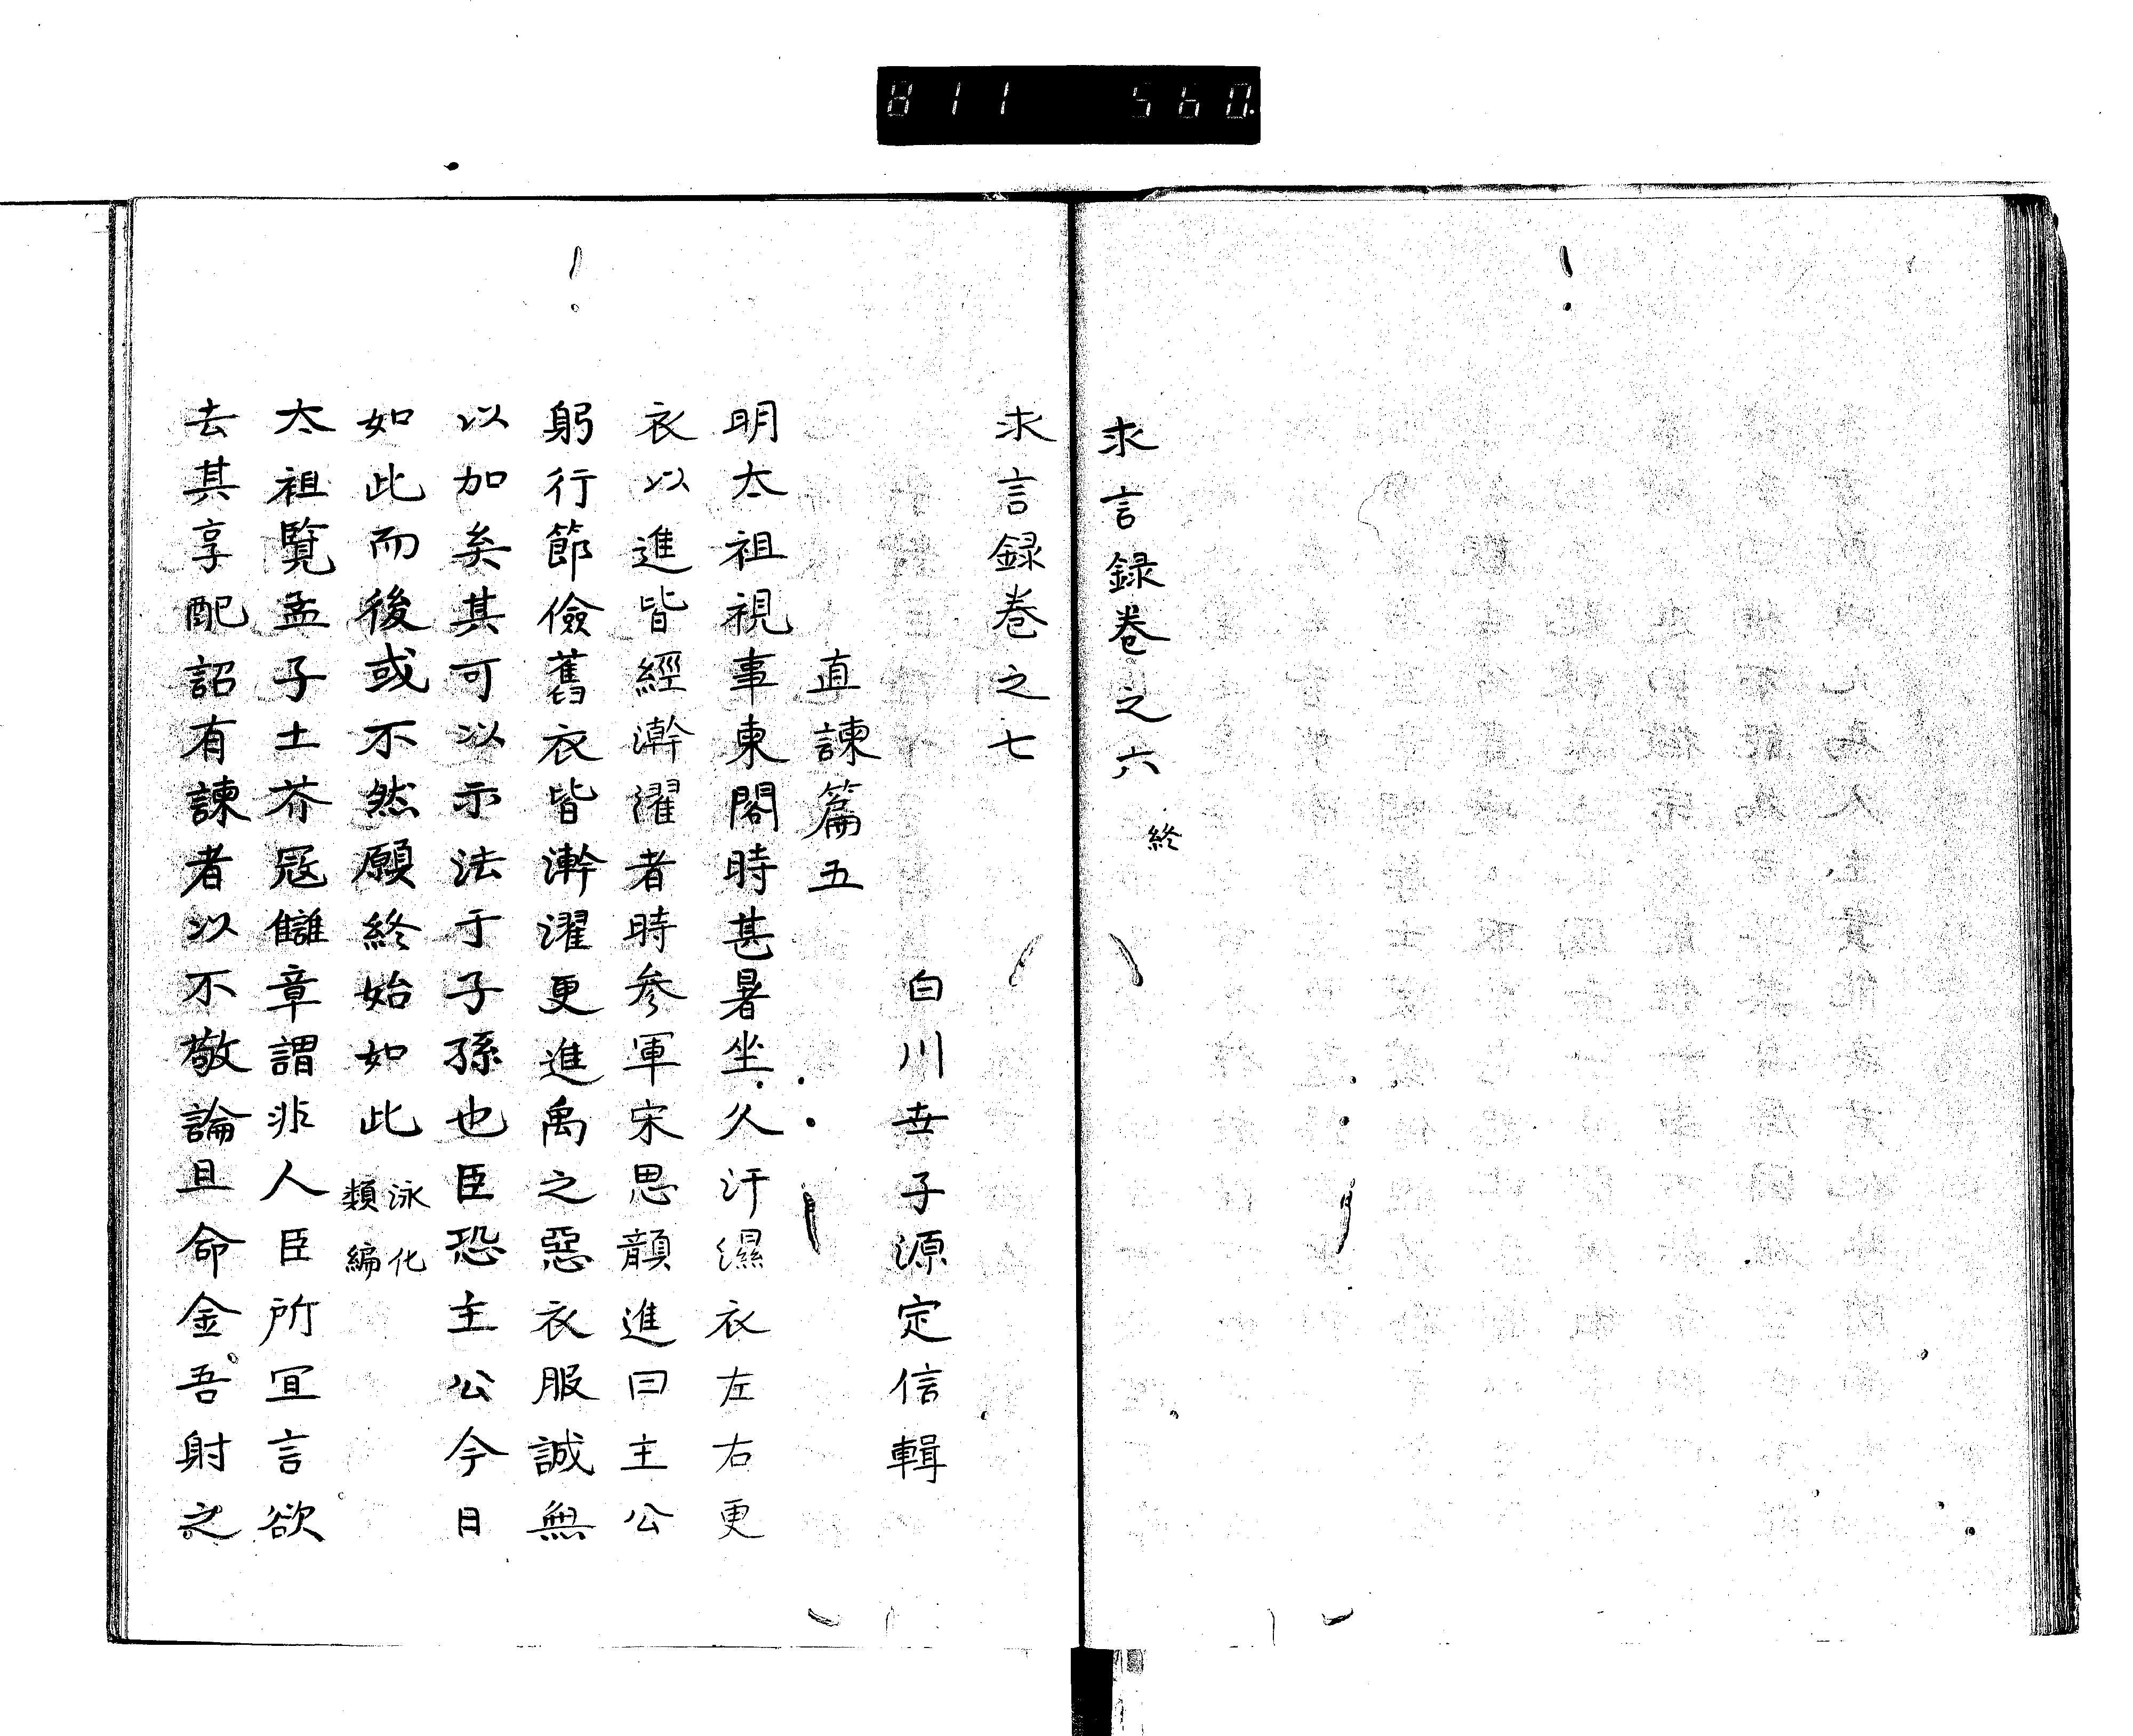 811 560.
求言録卷之六 終
求言録卷之七
白川世子源定信輯
直諫篇五
明太祖視事東閣時甚暑坐久汗濕衣左右更
衣以進皆經澣濯者時參軍宋思顏進曰主公
躬行節儉舊衣皆澣濯更進禹之惡衣服誠無
以加矣其可以示法于子孫也臣恐主公今日
如此而後或不然願終始如此 泳化類編
太祖覽孟子土芥冦讎章謂非人臣所宜言欲
去其享配詔有諫者以不敬論且命金吾射之